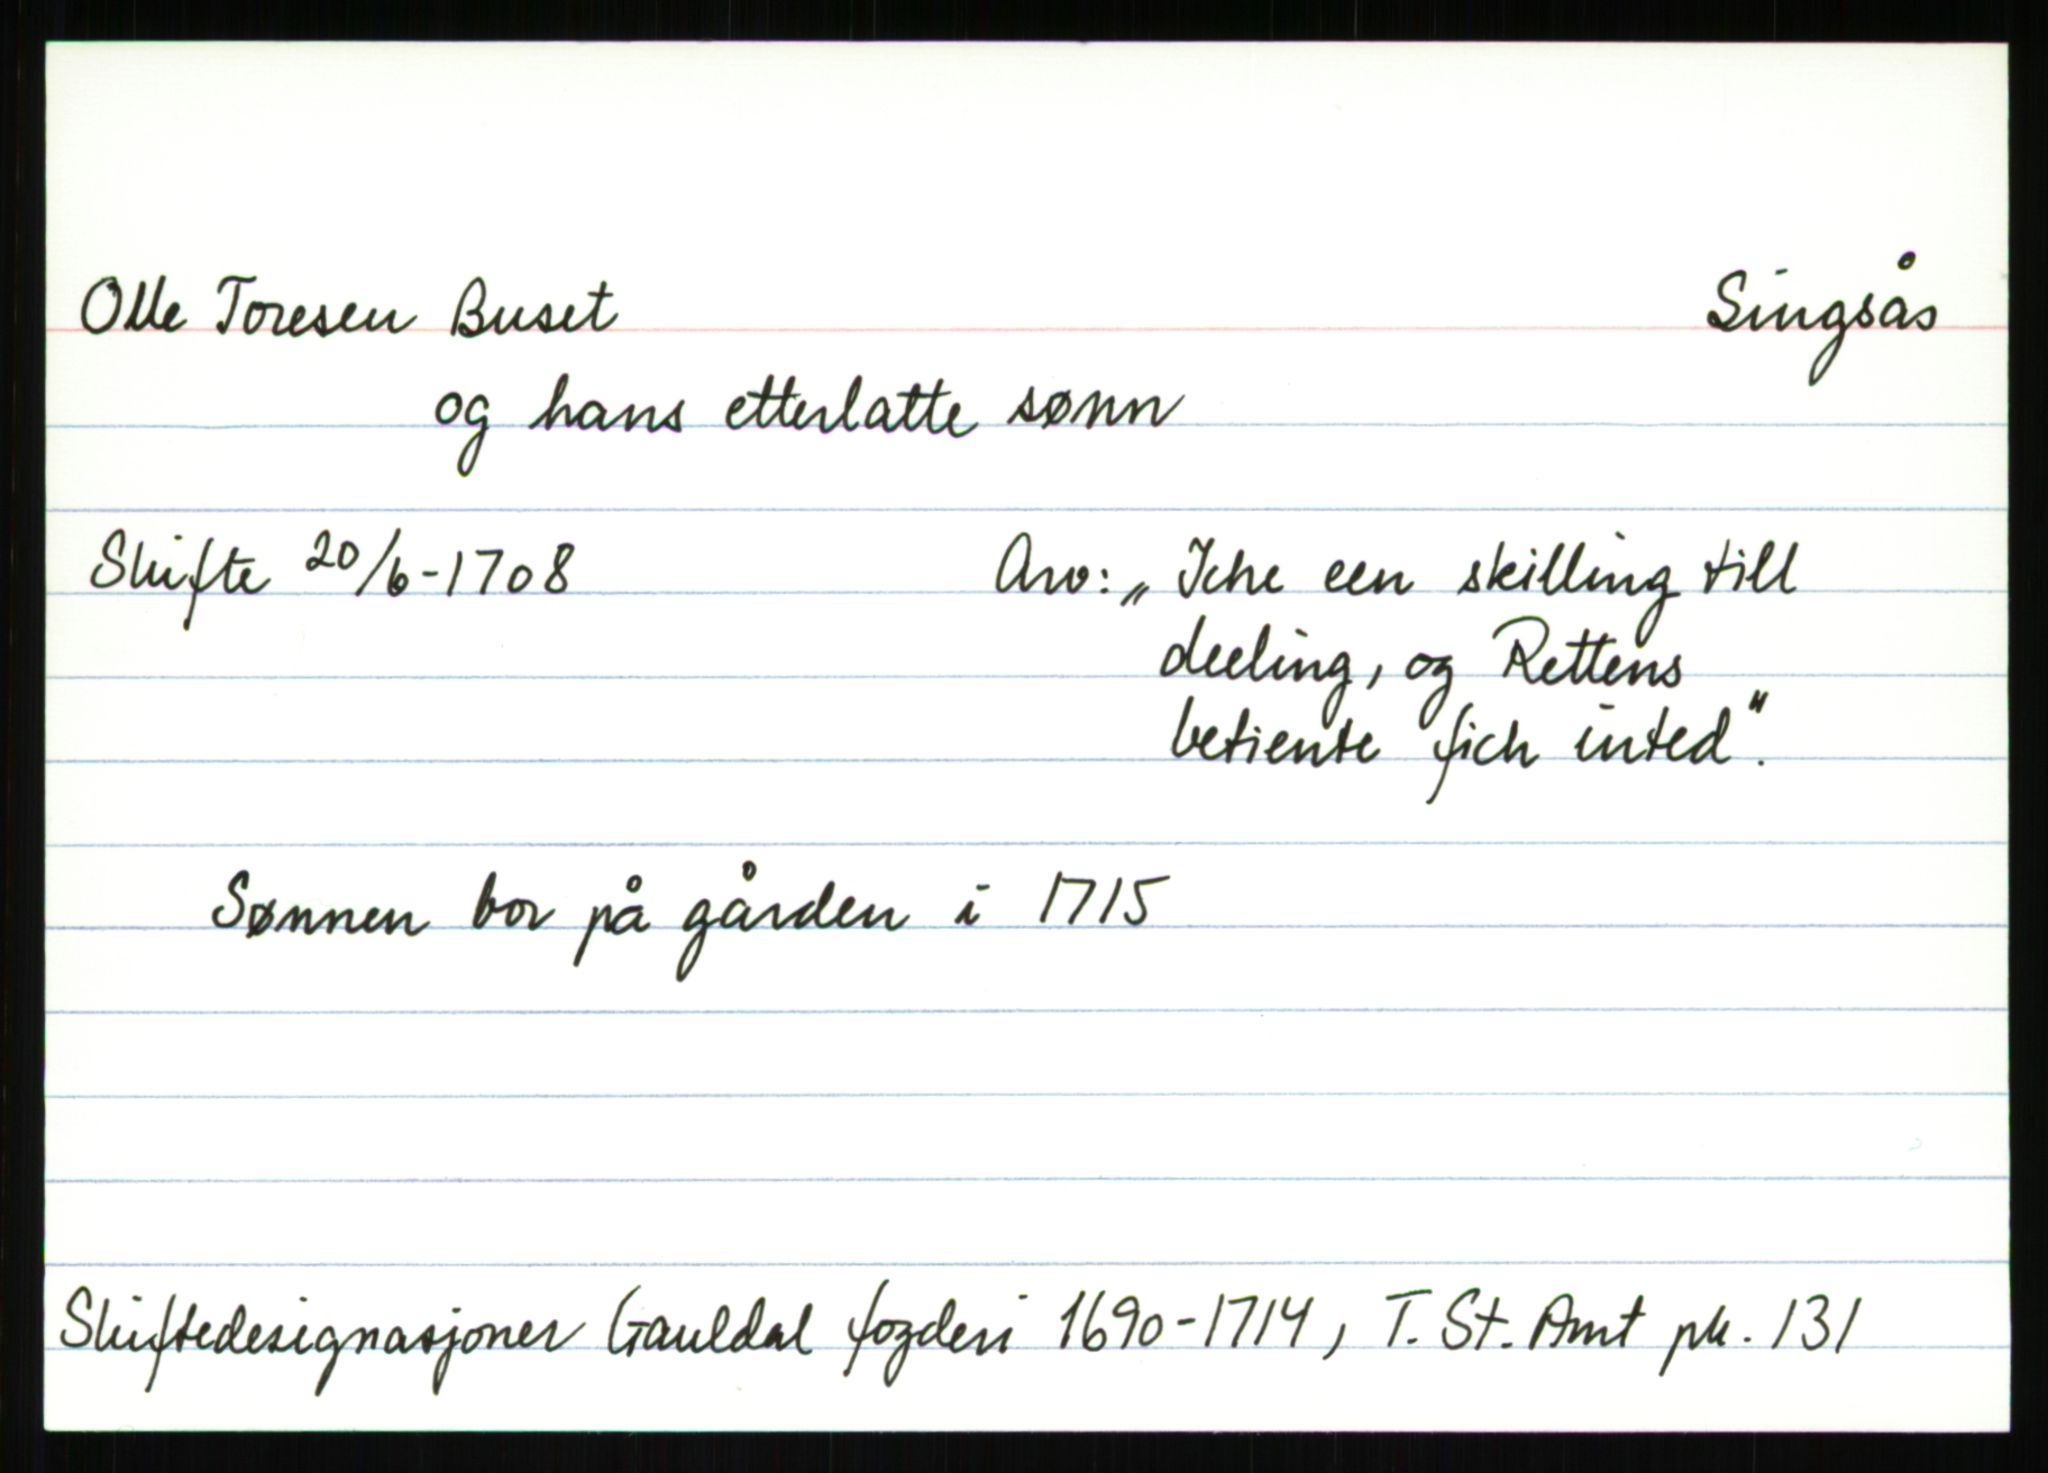 Olle Toresen Buset Singsås
og hans etterlatte sønn
Skifte 20/6-1708 Arv: „Iche een skilling till
deeling, og Rettens
betiente fich inted".
Sønnen bor på gården i 1715
Skiftedesignasjoner Gauldal fogderi 1690-1714, T. St. Amt pk. 131